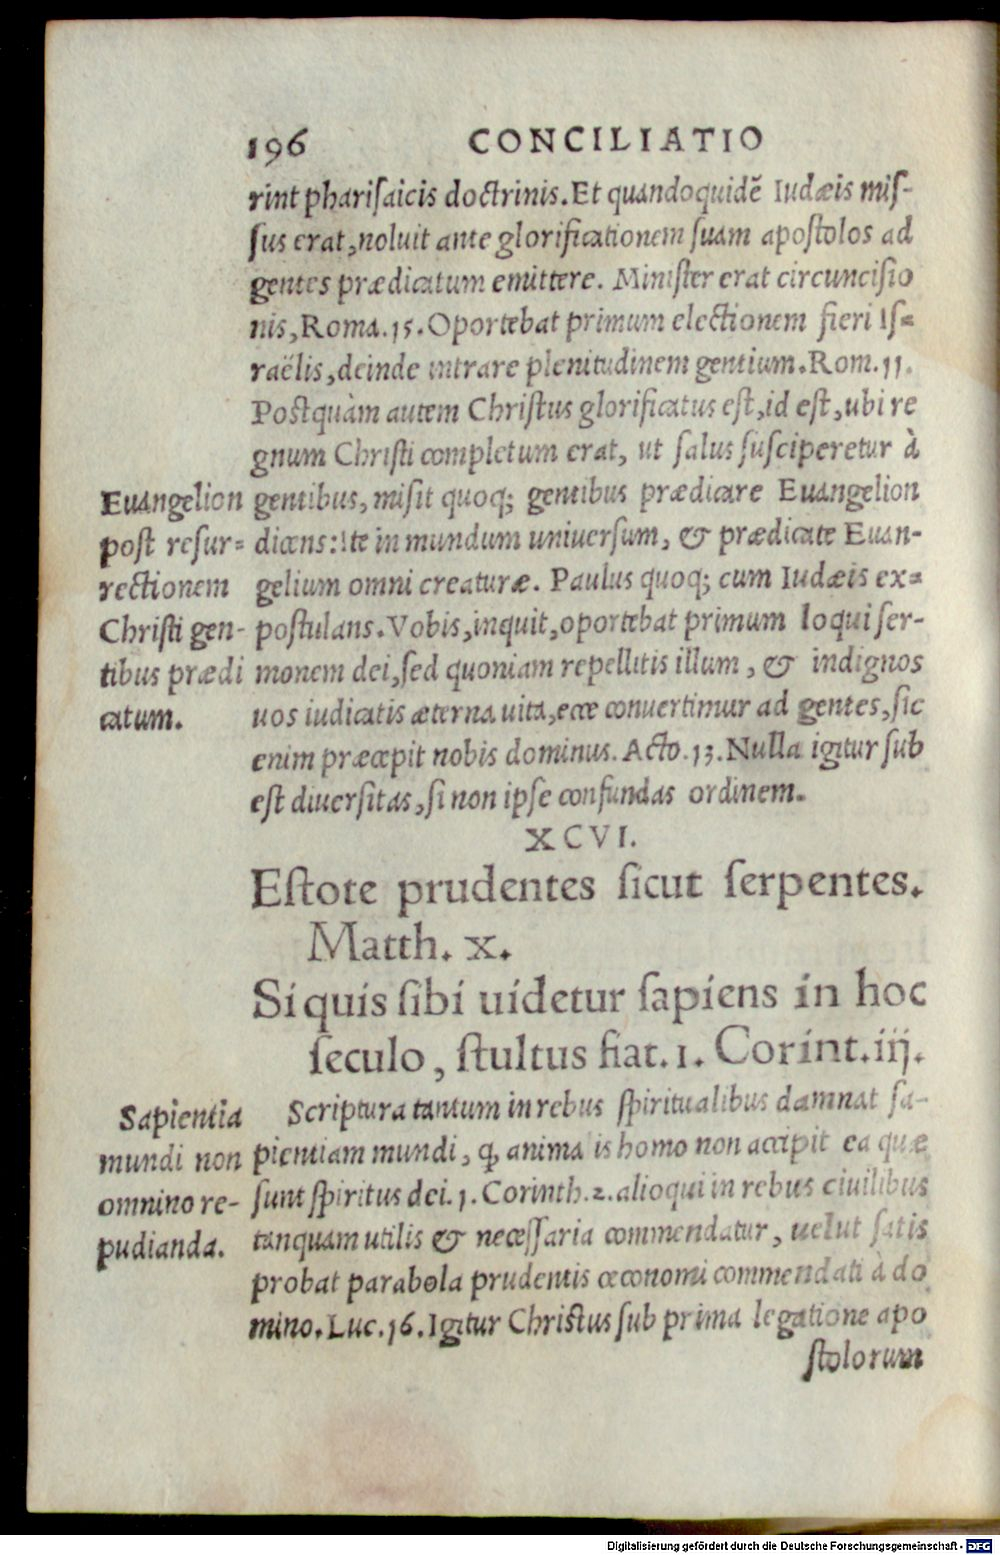 196 CONCILIATIO
rint phariſaicis doctrinis. Et quandoquidẽ Iudæis miſ-
ſus erat, noluit ante glorificationem ſuam apoſtolos ad
gentes prædicatum emittere. Miniſter erat circunciſio
nis, Roma. 15. Oportebat primum electionem fieri Iſ=
raëlis, deinde intrare plenitudinem gentium. Rom. 11.
Poſtquàm autem Chriſtus glorificatus eſt, id eſt, ubi re
gnum Chriſti completum erat, ut ſalus ſuſciperetur à
gentibus, miſit quoq; gentibus prædicare Euangelion
dicens: Ite in mundum uniuerſum, & prædicate Euan-
gelium omni creaturæ. Paulus quoq; cum Iudæis ex=
poſtulans. Vobis, inquit, oportebat primum loqui ſer-
monem dei, ſed quoniam repellitis illum, & indignos
uos iudicatis æterna uita, ecce conuertimur ad gentes, ſic
enim præcepit nobis dominus. Acto. 13. Nulla igitur ſub
eſt diuerſitas, ſi non ipſe confundas ordinem.
Euangelion
poſt reſur=
rectionem
Chriſti gen-
tibus prædi
catum.
XCVI.
Eſtote prudentes ſicut ſerpentes.
Matth. x.
Si quis ſibi uidetur ſapiens in hoc
ſeculo, ſtultus fiat. 1. Corint. iij.
Scriptura tantum in rebus ſpiritualibus damnat ſa-
pientiam mundi, ꝙ animalis homo non accipit ea quæ
ſunt ſpiritus dei. 1. Corinth. 2. alioqui in rebus ciuilibus
tanquam utilis & neceſſaria commendatur, uelut ſatis
probat parabola prudentis œconomi commendati à do
mino. Luc. 16. Igitur Chriſtus ſub prima legatione apo
ſtolorum
Sapientia
mundi non
omnino re-
pudianda.
Digitalisierung gefördert durch die Deutsche Forschungsgemeinschaft - DFG